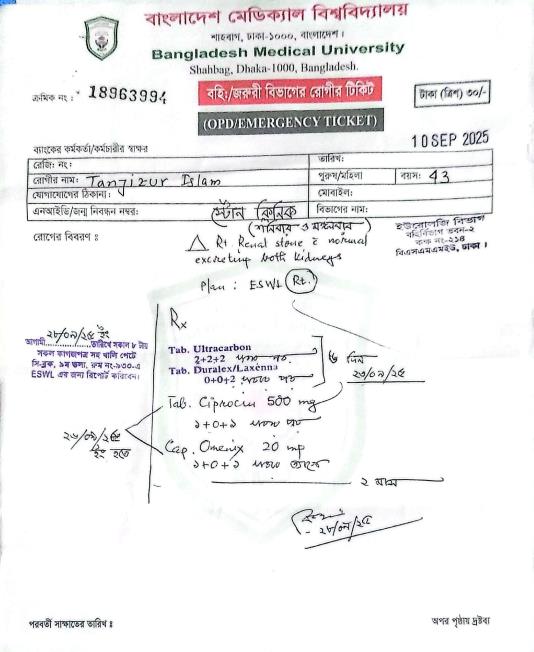 বাংলাদেশ মেডিক্যাল বিশ্ববিদ্যালয়
শাহবাগ, ঢাকা-১০০০, বাংলাদেশ।
Bangladesh Medical University
Shahbag, Dhaka-1000, Bangladesh.
ক্রমিক নং : 18963994
বহিঃ/জরুরী বিভাগের রোগীর টিকিট
টাকা (ত্রিশ) ৩০/-
(OPD/EMERGENCY TICKET)
10 SEP 2025
ব্যাংকের কর্মকর্তা/কর্মচারীর স্বাক্ষর
রেজি: নং: তারিখ:
রোগীর নাম: Tanjizur Islam পুরুষ/মহিলা বয়স: 43
যোগাযোগের ঠিকানা: মোবাইল:
এনআইডি/জন্ম নিবন্ধন নম্বর: স্টোন ক্লিনিক বিভাগের নাম:
(শনিবার ও মঙ্গলবার)
ইউরোলজি বিভাগ
বহির্বিভাগ ভবন-২
কক্ষ নং-২১৪
বিএসএমএমইউ, ঢাকা।
রোগের বিবরণ :
Δ Rt. Renal stone c normal
excreting both kidneys
Plan : ESWL Rt.
Rx
আগামী ২৮/০৯/২৫ ইং তারিখে সকাল ৮ টায়
সকল কাগজপত্র সহ খালি পেটে
সি-ব্লক, ৯ম তলা, রুম নং-৯০০-এ
ESWL এর জন্য রিপোর্ট করিবেন।
Tab. Ultracarbon
2+2+2
Tab. Duralex/Laxenna
0+0+2
দিন
২৩/০৯/২৫
Tab. Ciprocin 500 mg
১+০+১
২৬/০৯/২৫
ইং হতে
Cap. Omenix 20 mg
১+০+১
২ মাস
২৮/০৯/২৫
পরবর্তী সাক্ষাতের তারিখ :
অপর পৃষ্ঠায় দ্রষ্টব্য